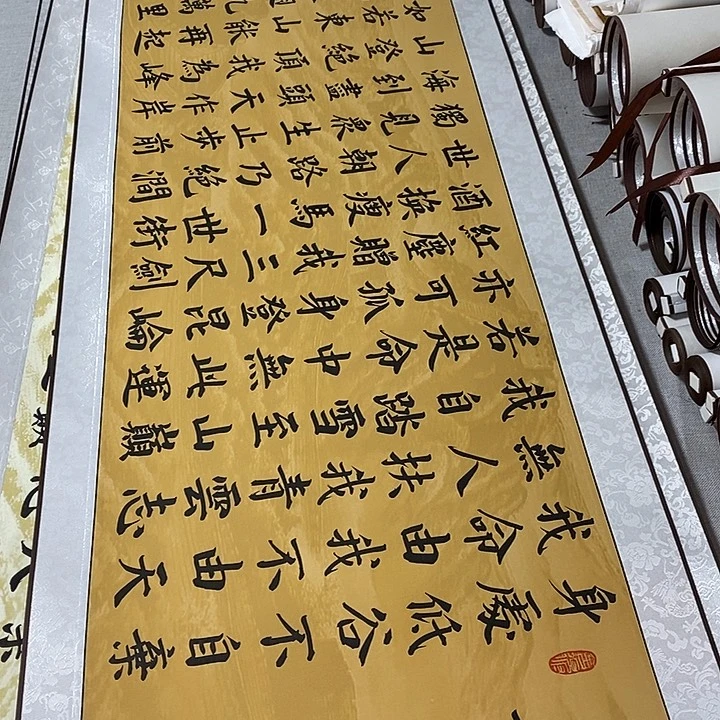 身處低谷不自棄
我命由我不由天
無人扶我青雲志
我自踏雪至山巔
若是命中無此運
亦可孤身登昆崙
紅塵贈我三尺劍
酒換瘦馬一世街
世人朝路乃絕澗
獨見眾生止步前
海到盡頭天作岸
山登絕頂我為峰
如若東山能再起
九萬里